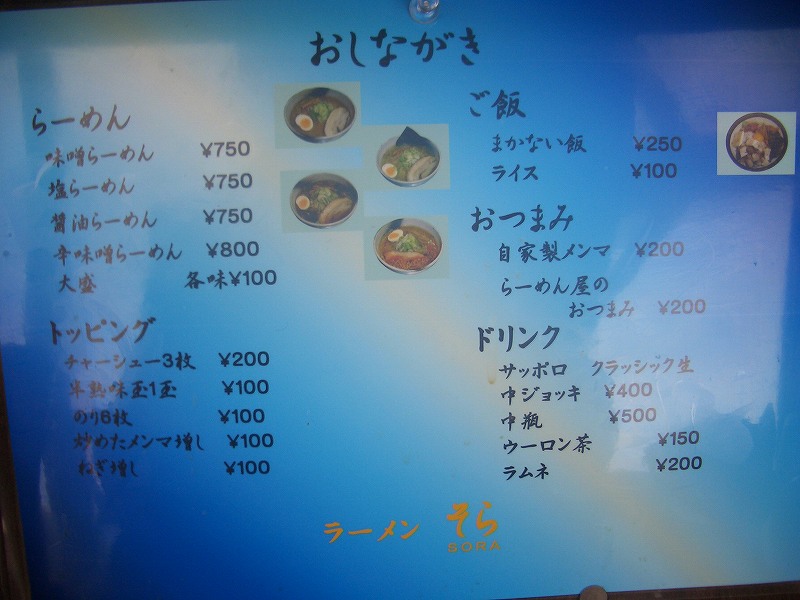 おしながき
らーめん
味噌らーめん ¥750
塩らーめん ¥750
醤油らーめん ¥750
辛味噌らーめん ¥800
大盛 各味¥100
トッピング
チャーシュー3枚 ¥200
半熟味玉1玉 ¥100
のり6枚 ¥100
炒めたメンマ増し ¥100
ねぎ増し ¥100
ご飯
まかない飯 ¥250
ライス ¥100
おつまみ
自家製メンマ ¥200
らーめん屋の
おつまみ ¥200
ドリンク
サッポロ クラッシック生
中ジョッキ ¥400
中瓶 ¥500
ウーロン茶 ¥150
ラムネ ¥200
ラーメン そら
SORA